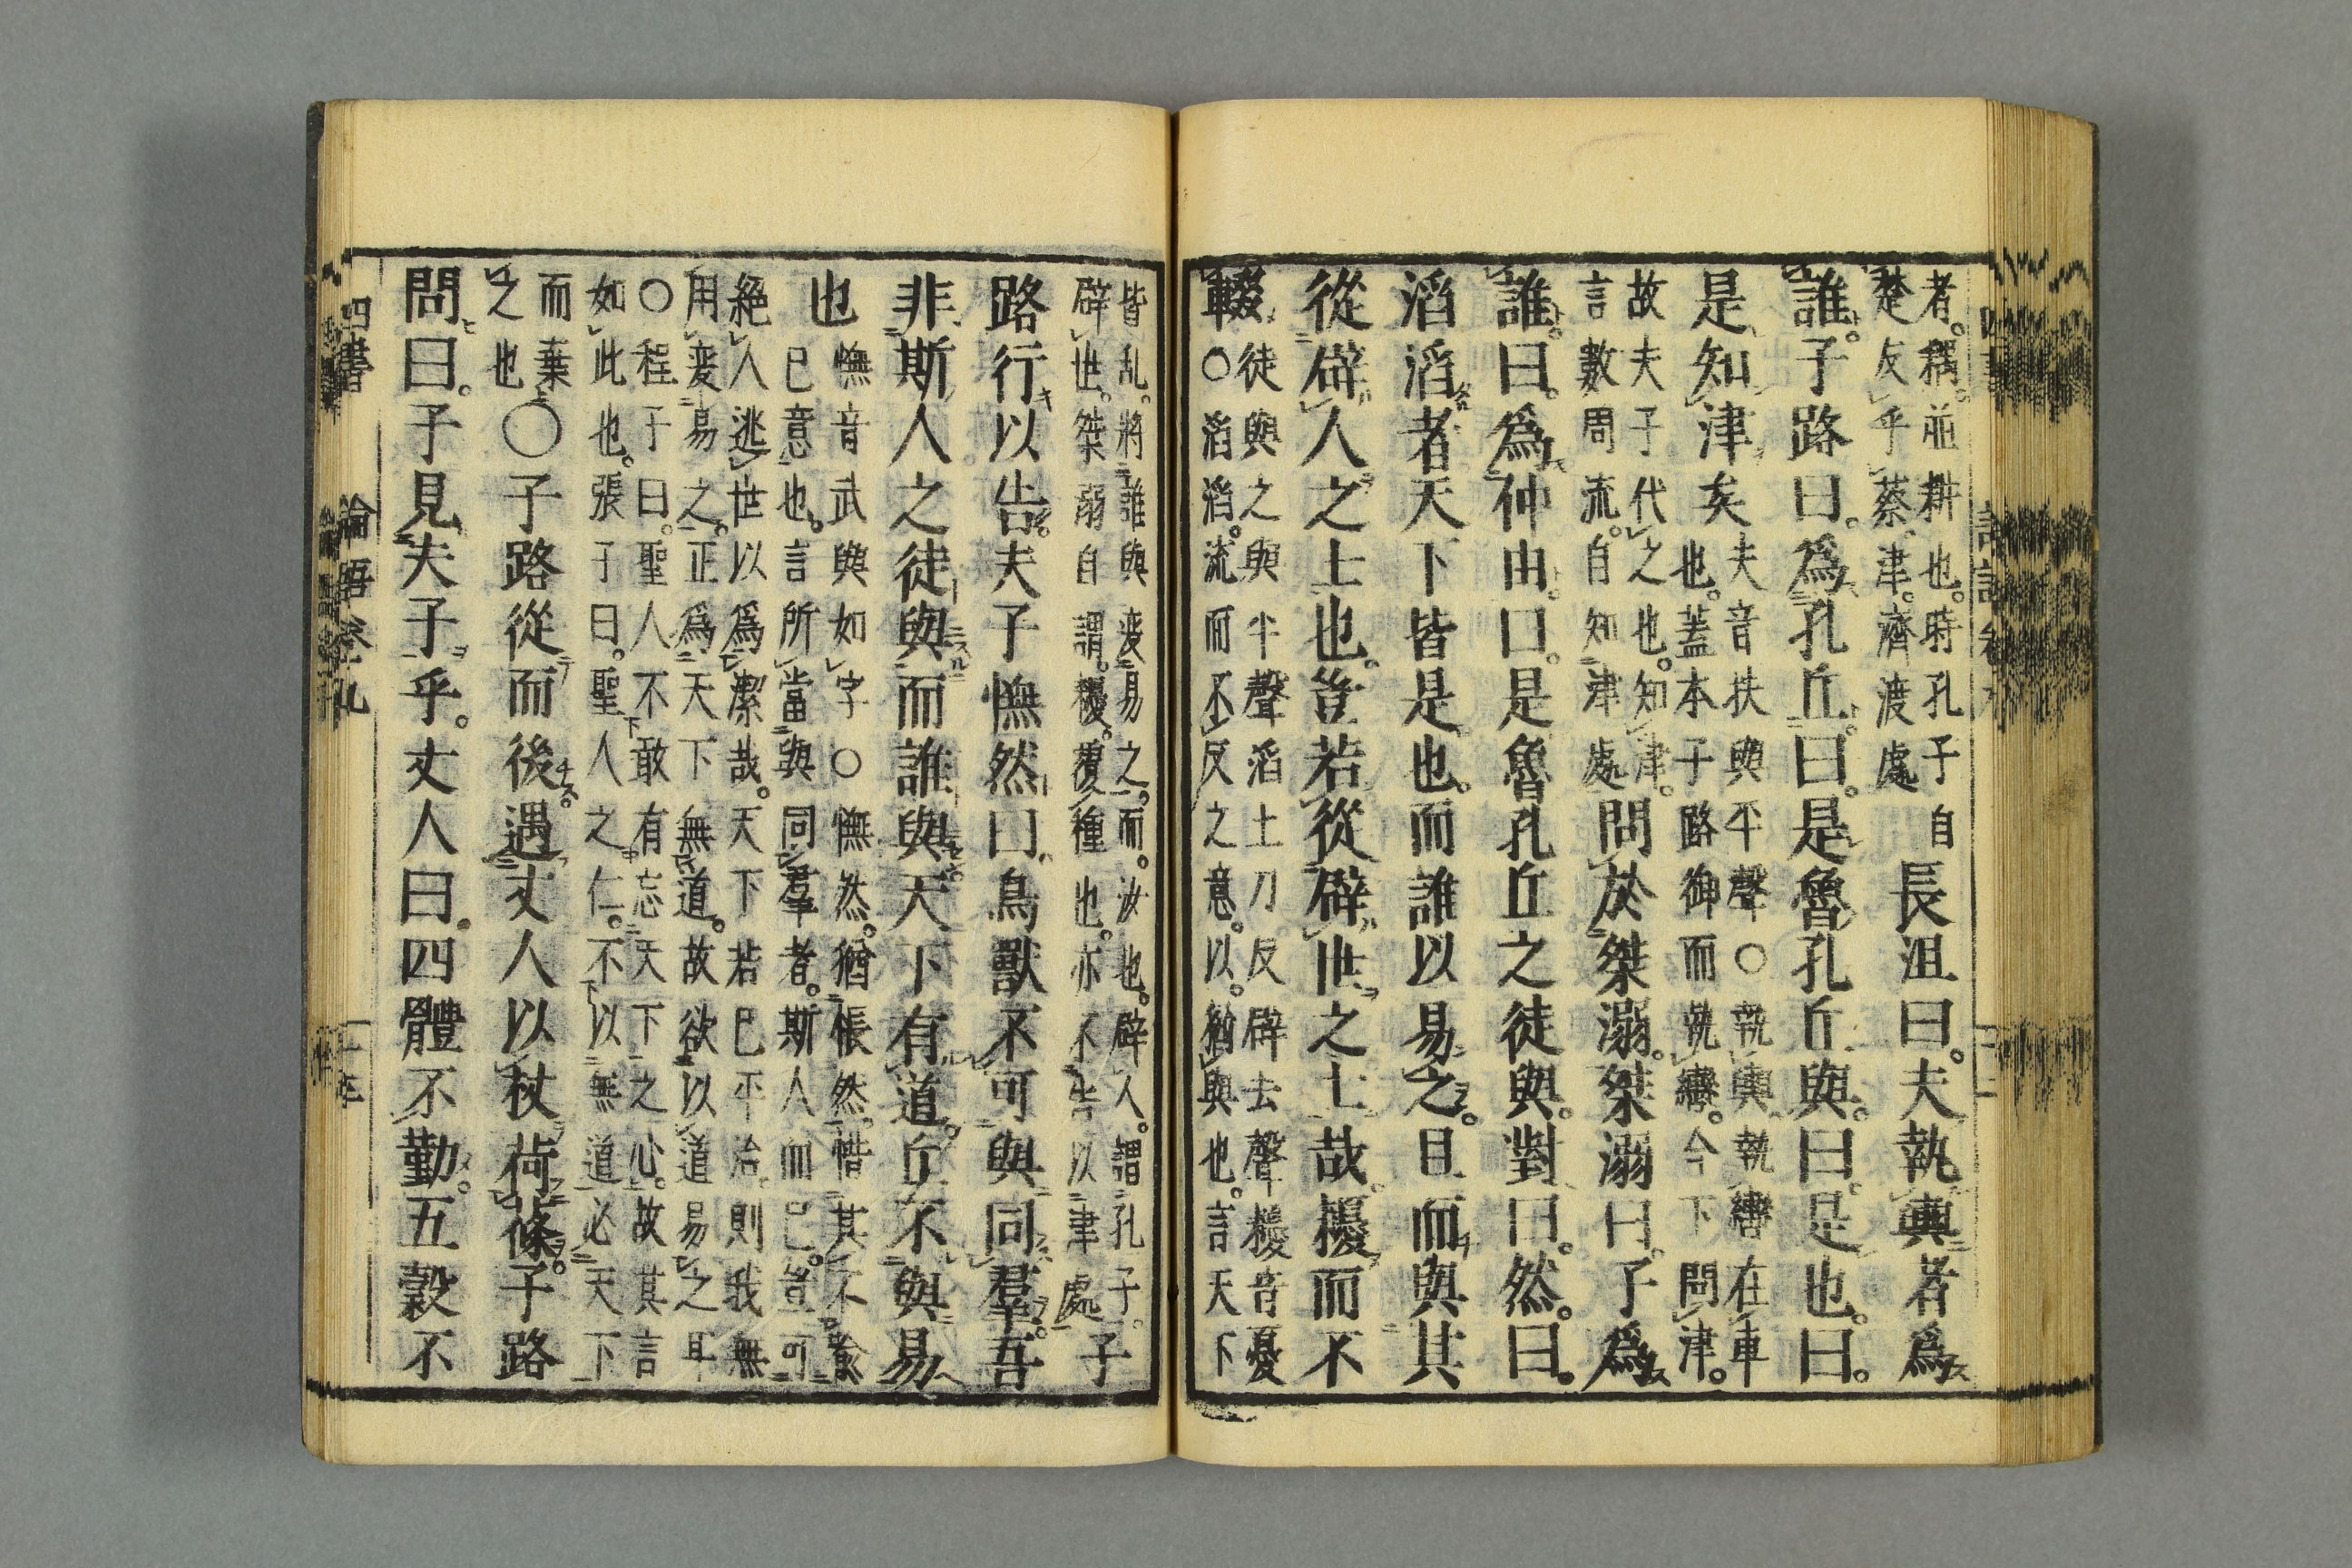 者。耦。並耕也。時孔子自
楚反乎蔡。津。濟渡處
長沮曰。夫執輿者爲
誰。子路曰。爲孔丘。曰。是魯孔丘與。曰。是也。曰。
是知津矣
夫音扶與平聲○執輿執轡在車
也。蓋本子路御而執轡。今下問津。
故夫子代之也。知津。
言數周流。自知津處
問於桀溺。桀溺曰。子爲
誰。曰。爲仲由。曰。是魯孔丘之徒與。對曰。然。曰。
滔滔者天下皆是也。而誰以易之。且而與其
從辟人之士也。豈若從辟世之士哉。耰而不
輟
徒與之與平聲滔土刀反辟去聲耰音憂
○滔滔。流而不反之意。以。猶與也。言天下
皆乱。將誰與変易之。而。汝也。辟人。謂孔子。
辟世。桀溺自謂。耰。覆種也。亦不告以津處
子
路行以告。夫子憮然曰。鳥獸不可與同羣。吾
非斯人之徒與而誰與。天下有道。丘不與易
也
憮音武與如字○憮然。猶悵然。惜其不喩
己意也。言所當與同羣者。斯人而已。豈可
絕人逃世以爲潔哉。天下若已平治。則我無
用変易之。正爲天下無道。故欲以道易之耳
○程子曰。聖人不敢有忘天下之心。故其言
如此也。張子曰。聖人之仁。不以無道必天下
而棄
之也
○子路從而後。遇丈人以杖荷蓧。子路
問曰。子見夫子乎。丈人曰。四體不勤。五穀不
四書 論語卷九